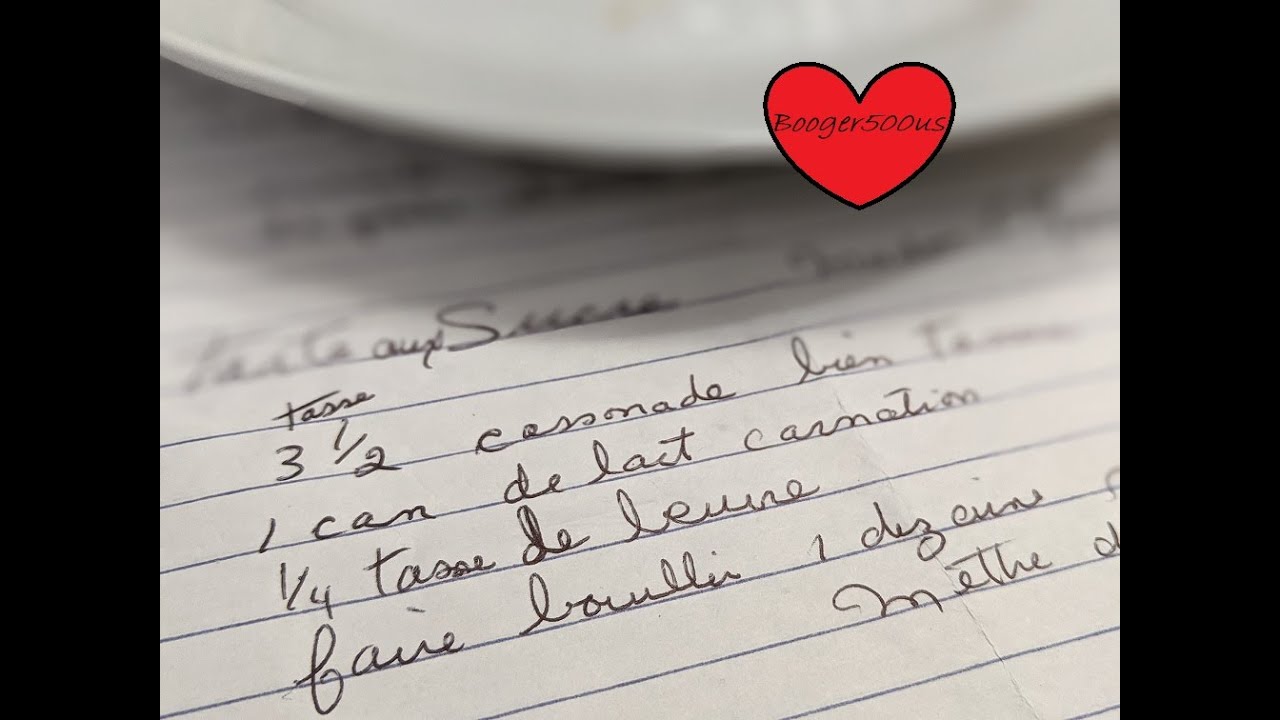 Booger500us
Tarte aux Sucre
tasse
3 1/2 cassonade bien
1 can de lait carnation
1/4 tasse de beurre
faire bouillir 1 dezaine